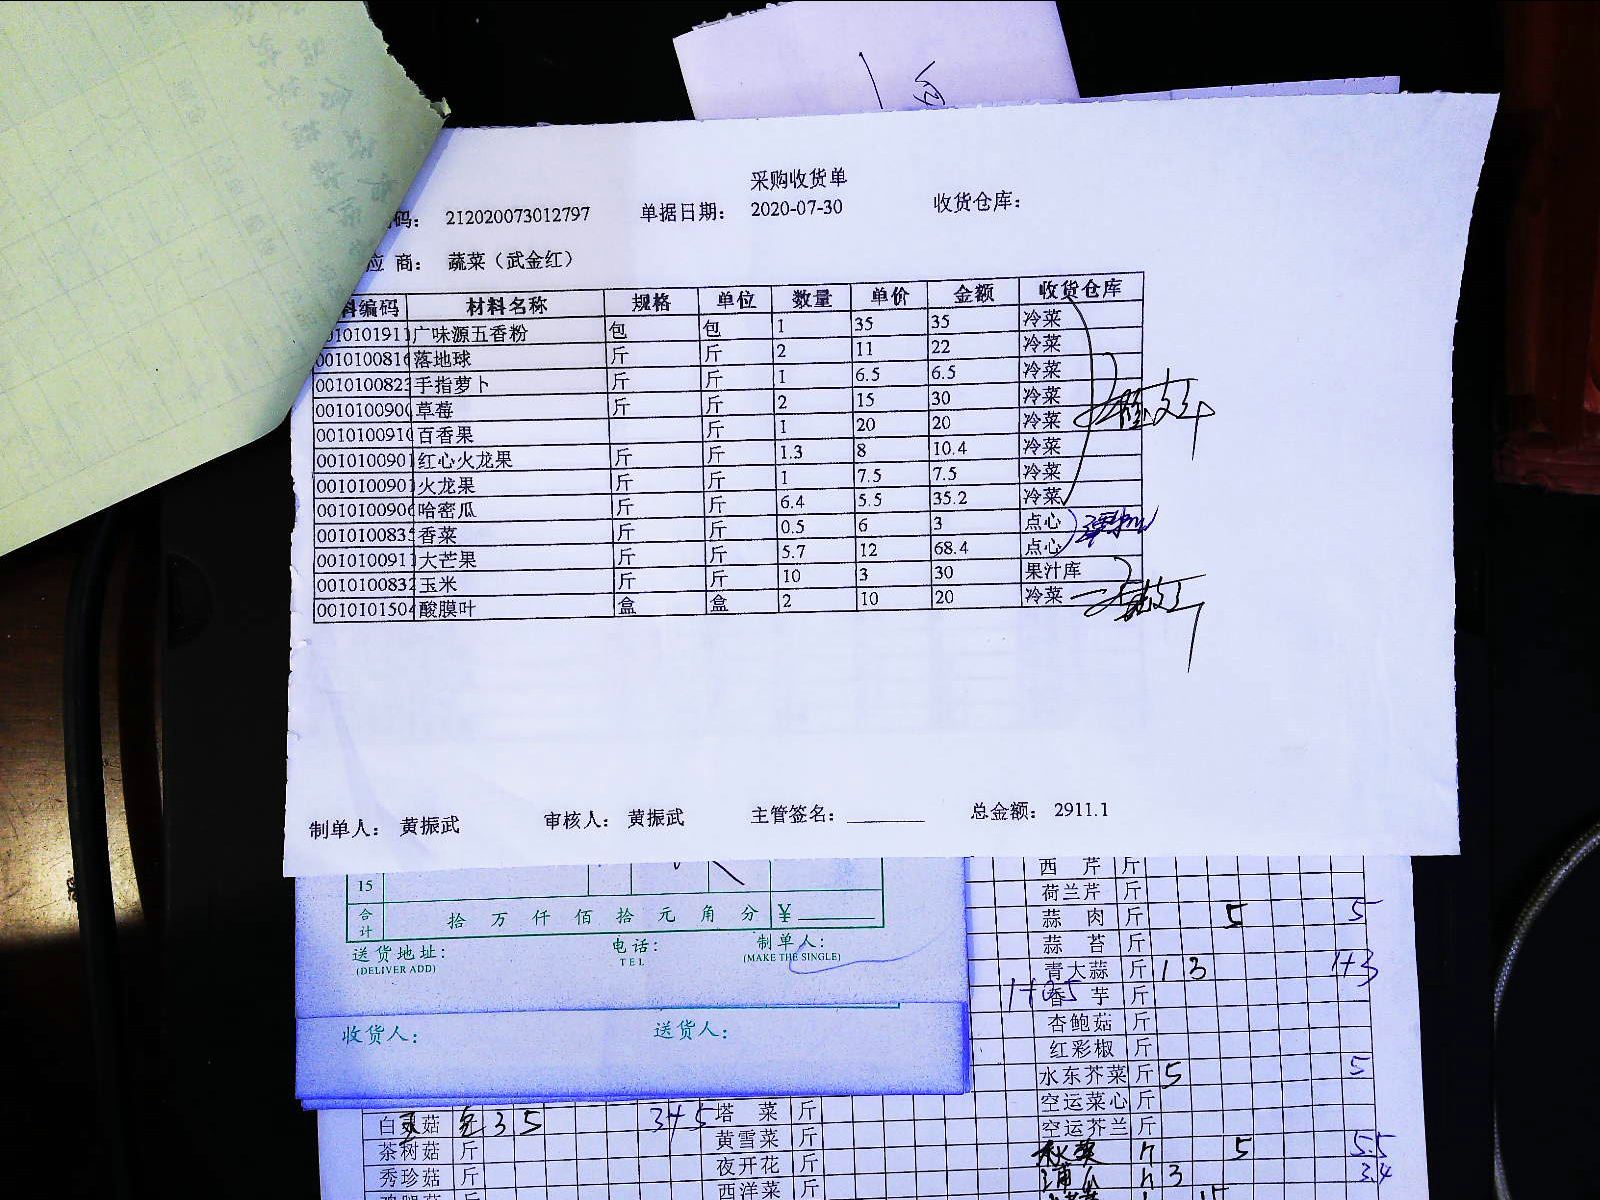 采购收货单
码： 212020073012797 单据日期： 2020-07-30 收货仓库：
应 商： 蔬菜（武金红）
料编码 材料名称 规格 单位 数量 单价 金额 收货仓库
010101911 广味源五香粉 包 包 1 35 35 冷菜
001010081 落地球 斤 斤 2 11 22 冷菜
001010082 手指萝卜 斤 斤 1 6.5 6.5 冷菜
001010090 草莓 斤 斤 2 15 30 冷菜
001010091 百香果 斤 1 20 20 冷菜
001010090 红心火龙果 斤 斤 1.3 8 10.4 冷菜
001010090 火龙果 斤 斤 1 7.5 7.5 冷菜
001010090 哈密瓜 斤 斤 6.4 5.5 35.2 冷菜
001010083 香菜 斤 斤 0.5 6 3 点心
001010091 大芒果 斤 斤 5.7 12 68.4 点心
001010083 玉米 斤 斤 10 3 30 果汁库
001010150 酸膜叶 盒 盒 2 10 20 冷菜
制单人： 黄振武 审核人： 黄振武 主管签名： 总金额： 2911.1
15
合计 拾 万 仟 佰 拾 元 角 分 ¥
送货地址： 电话： 制单人：
(DELIVER ADD) TEL (MAKE THE SINGLE)
收货人： 送货人：
西 芹 斤
荷兰芹 斤
蒜 肉 斤 5 5
蒜 苔 斤
青大蒜 斤 1 3 1+3
香 芋 斤
杏鲍菇 斤
红彩椒 斤
水东芥菜 斤 5 5
空运菜心 斤
空运芥兰 斤
5 5.5
3 3.4
白灵菇 3 5 3+5 塔 菜 斤
茶树菇 斤 黄雪菜 斤
秀珍菇 斤 夜开花 斤
西洋菜 斤